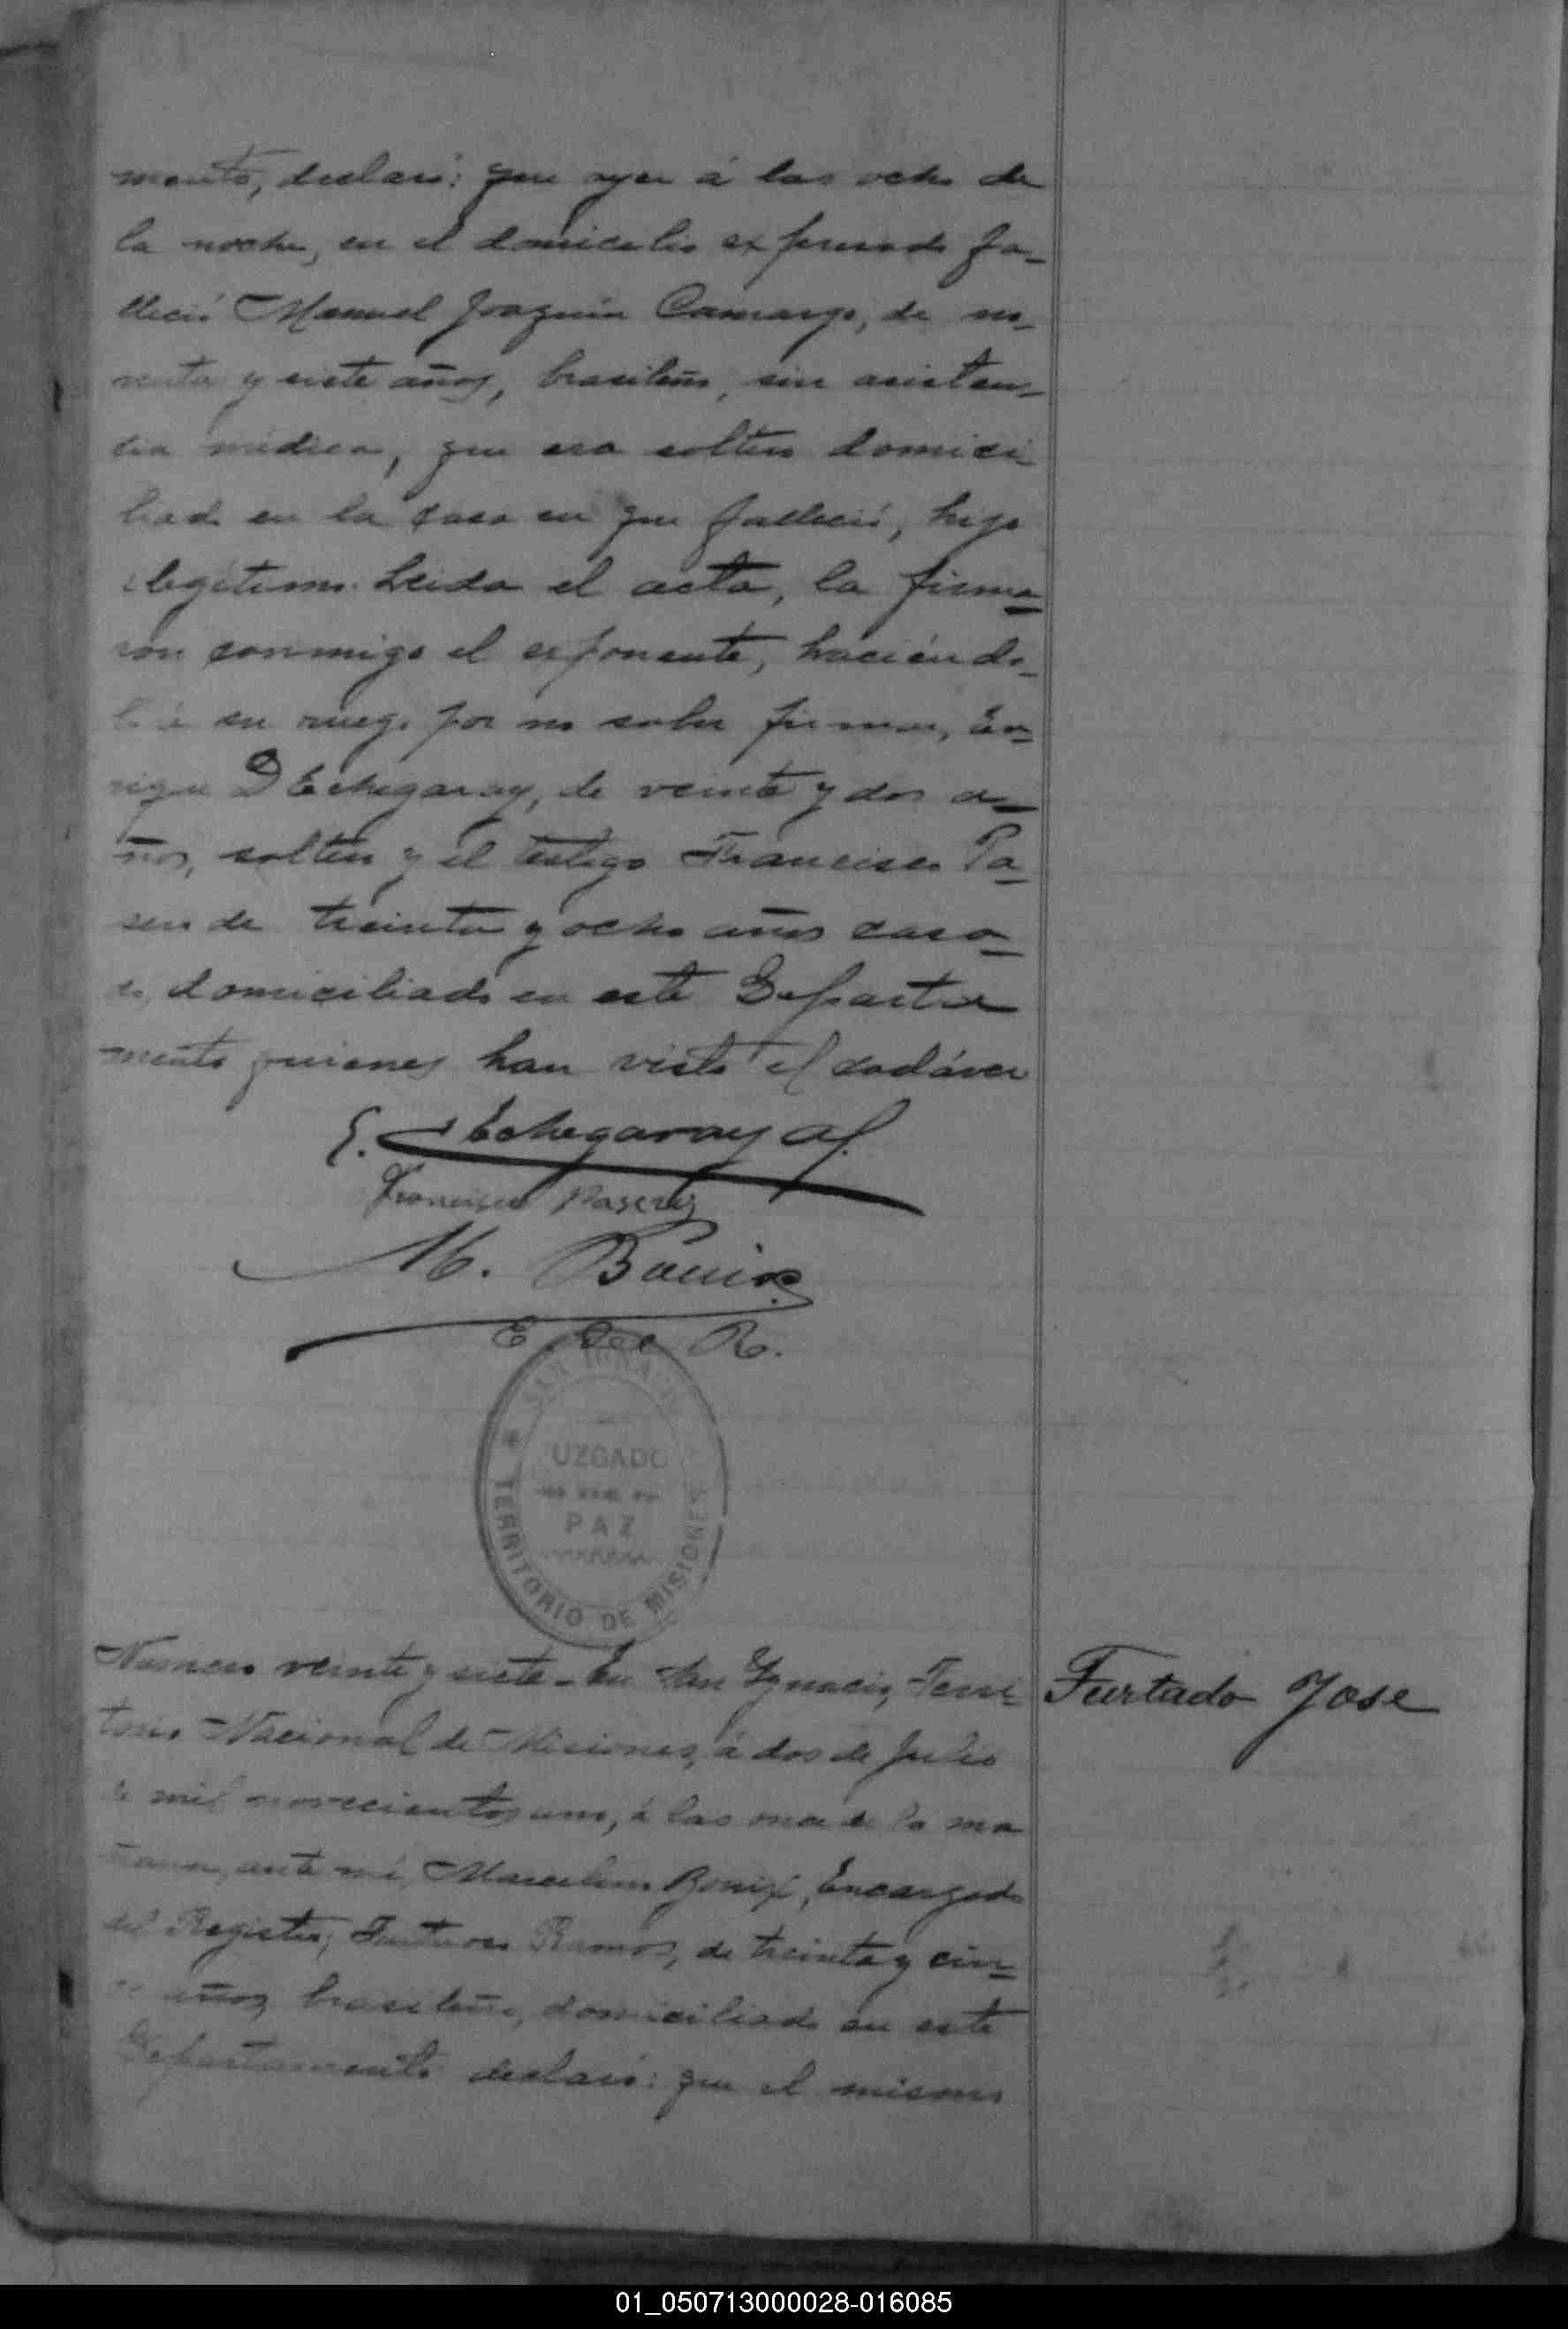 mento, declaró: que ayer á las ocho de
la noche, en el domicilio expresado fa-
lleció Manuel Joaquin Camargo, de no-
venta y siete años, brasileño, sin asisten-
cia médica, que era soltero domici-
liado en la casa en que falleció, hijo
ilegítimo. Leida el acta, la firma-
ron conmigo el exponente, haciéndo-
lo á su ruego por no saber firmar, En-
rique D Echegaray, de veinte y dos a-
ños, soltero y el testigo Francisco Pa-
sero de treinta y ocho años casa-
do, domiciliado en este Departa
mento quienes han visto el cadáver
E. Echegaray
Francisco
M.
E. del R.
SAN IGNACIO
UZGADO
PAZ
TERRITORIO DE MISIONES
Numero veinte y siete - En San Ignacio, Terri-
Furtado Jose
torio Nacional de Misiones, á dos de Julio
de mil novecientos uno, á las once de la ma
ñana, ante mi, Marcelino Encargado
del Registro, Ramos, de treinta y cin-
co años, brasileño, domiciliado en este
Departamento declaró: que el mismo
01_050713000028-016085